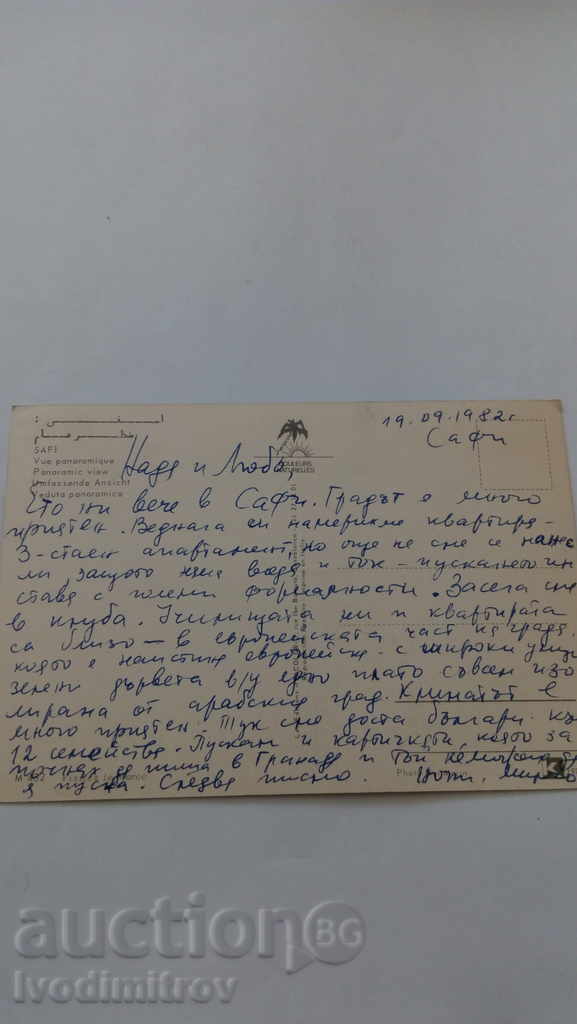 19.09.1982г
Сафи
آسفي :
منظر عام
SAFI
Vue panoramique
Panoramic view
Umfassende Ansicht
Veduta panoramica
COULEURS
NATURELLES
Надя и Люба,
Ето ни вече в Сафи. Градът е много
приятен. Веднага си намерихме квартира -
3-стаен апартамент, но още не сме се нанес
ли, защото няма вода и ток - пускането им
става с големи формалности. Засега сме
в клуба. Училищата ни и квартирата
са близо — в европейската част на града,
която е наистина европейска - с широки улици
зелени дървета в/у едно плато съвсем изо
лирана от арабския град. Климатът е
много приятен. Тук сме доста българи. към
12 семейства. Пускам и картичката, която за
да пиша в Гранада и
я пусна. Следва писмо.
auctionBG
Ivodimitrov